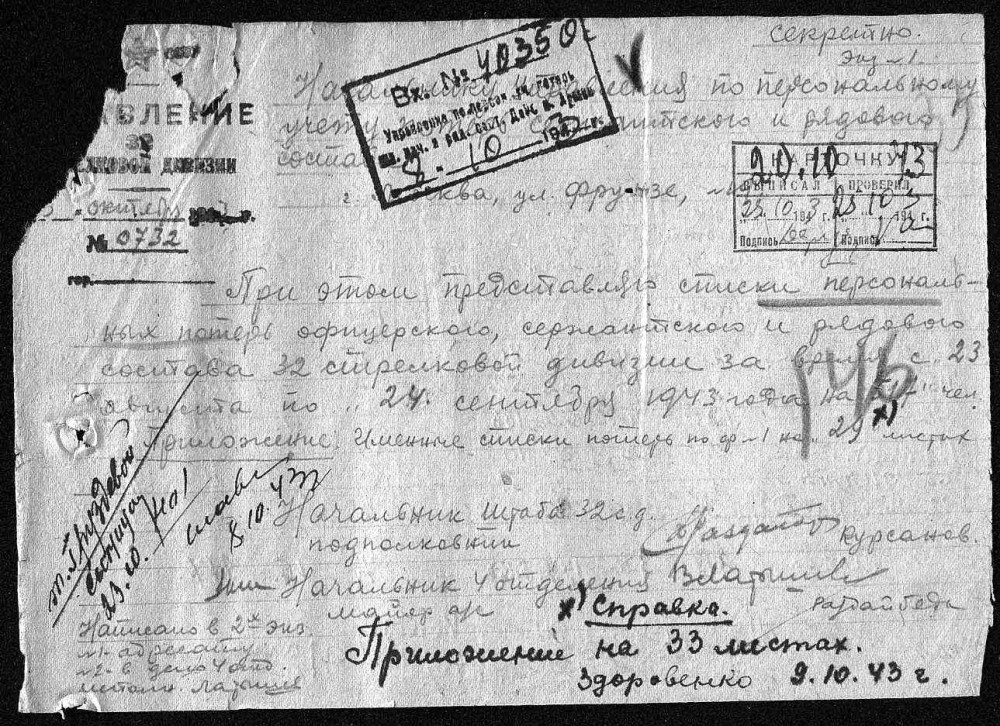 секретно.
Экз - 1.
СССР
ВЛЕНИЕ
32
ЛКОВОЙ ДИВИЗИИ
октября
№ 0732
гор.
Вх. № 40350
Управление по персон. уч. потерь
8. 10 1943 г.
по персональному
учету сержантского и рядового
соста
г. Москва, ул. Фрунзе,
КАРТОЧКУ
20.10 43
ВЫПИСАЛ ПРОВЕРИЛ
25 10 1943 г. 25 10 1943 г.
Подпись Подпись
При этом представляю списки персональ-
ных потерь офицерского, сержантского и рядового
состава 32 стрелковой дивизии за время с 23
августа по „24. сентября 1943 года на чел.
146
Приложение: Именные списки потерь по ф-1 на „29" х) листах
т. Груздевой
23.10.
8.10.43
Начальник штаба 32 с.д.
подполковник
Курсанов.
Начальник 4 отделения
майор а/с
х) Справка.
Приложение на 33 листах.
Здоровенко 9.10.43 г.
Написано в 2х экз.
№1. адресату
№2. в дело 4 отд.
исполн. Латышев